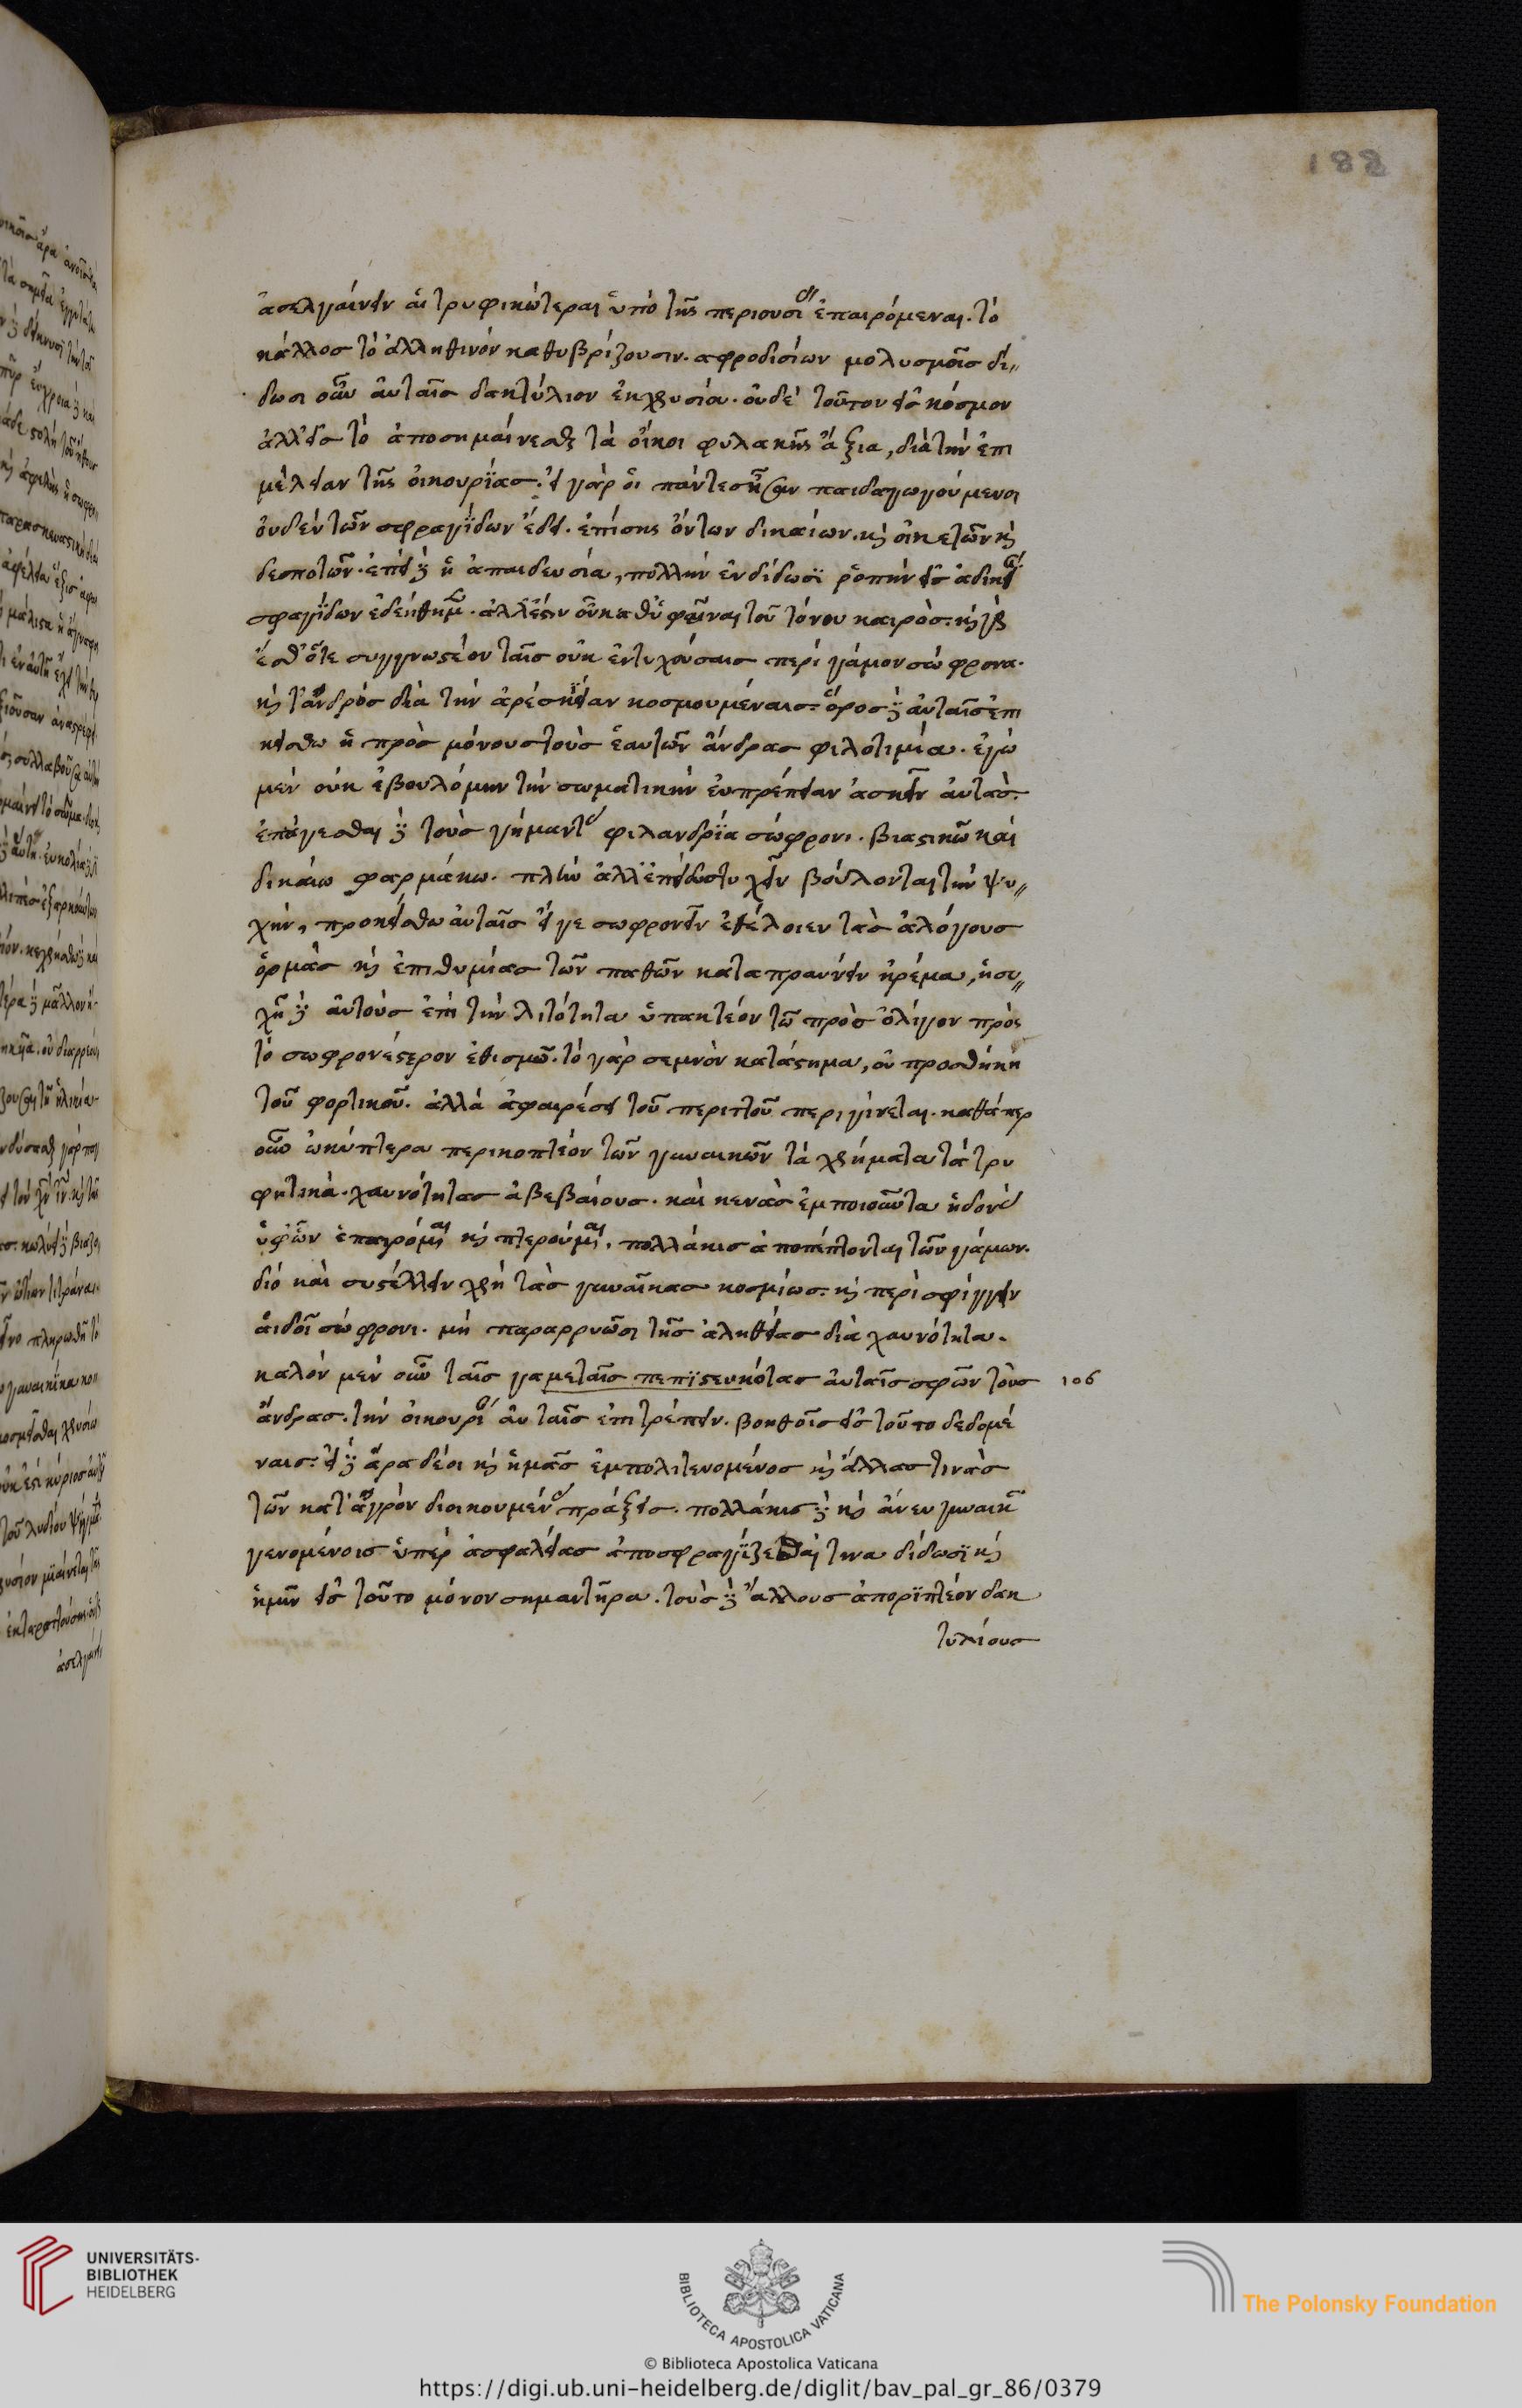 188
ἀσελγαίνειν αἱ τρυφικώτεραι ὑπὸ τῆς περιουσίας ἐπαιρόμεναι. τὸ
κάλλος τὸ ἀλληθινὸν καθυβρίζουσιν. ἀφροδισίων μολυσμοῖς δί〃
δωσι οὖν αὐταῖς δακτύλιον ἐκ χρυσίου. οὐδὲ τοῦτον εἰς κόσμον
ἀλλ' εἰς τὸ ἀποσημαίνεσθαι τὰ οἴκοι φυλακῆς ἄξια, διὰ τὴν ἐπι
μέλειαν τῆς οἰκουρίας. εἰ γὰρ οἱ πάντες ἦσαν παιδαγωγούμενοι
οὐδὲν τῶν σφραγίδων ἔδει. ἐπίσης ὄντων δικαίων. καὶ οἰκετῶν καὶ
δεσποτῶν. ἐπεὶ δὲ ἡ ἀπαιδευσία, πολλὴν ἐνδίδωσι ῥοπὴν εἰς ἀδικίαν
σφαγίδων ἐδεήθημεν. ἀλλ' ἔστιν οὗ καθυφεῖναι τοῦ τόνου καιρός. καὶ γὰρ
ἔσθ' ὅτε συγγνωστέον ταῖς οὐκ ἐντυχούσαις περὶ γάμον σώφρονα.
καὶ τἀνδρὸς διὰ τὴν ἀρέσκειαν κοσμουμέναις. ὅρος δὲ αὐταῖς ἐπι
κείσθω ἡ πρὸς μόνους τοὺς ἑαυτῶν ἄνδρας φιλοτιμία. ἐγὼ
μὲν οὐκ ἐβουλόμην τὴν σωματικὴν εὐπρέπειαν ἀσκεῖν αὐτάς.
ἐπάγεσθαι δὲ τοὺς γήμαντας φιλανδρία σώφρονι. βιαστικῶ καὶ
δικαίω φαρμάκω. πλὴν ἀλλ' ἐπεὶ δυστυχεῖν βούλονται τὴν ψυ〃
χήν, προκείσθω αὐταῖς εἴ γε σωφρονεῖν ἐθέλοιεν τὰς ἀλόγους
ὁρμὰς καὶ ἐπιθυμίας τῶν παθῶν καταπραύνειν ἠρέμα, ἡσυ〃
χῆ δὲ αὐτοὺς ἐπὶ τὴν λιτότητα ὑπακτέον τῶ πρὸς ὀλίγον πρὸς
τὸ σωφρονέστερον ἐθισμῶ. τὸ γὰρ σεμνὸν κατάστημα, οὐ προσθήκη
τοῦ φορτικοῦ. ἀλλὰ ἀφαιρέσει τοῦ περιττοῦ περιγίνεται. καθάπερ
οὖν ὠκύπτερα περικοπτέον τῶν γυναικῶν τὰ χρήματα τὰ τρυ
φητικὰ. χαυνότητας ἀβεβαίους. καὶ κενὰς ἐμποιοῦντα ἡδονάς
ὑφ' ὧν ἐπαιρόμεναι καὶ πτερούμεναι, πολλάκις ἀποπέπτονται τῶν γάμων.
διὸ καὶ συστέλλειν χρὴ τὰς γυναῖκας κοσμίως. καὶ περισφίγγειν
αἰδοῖ σώφρονι. μὴ παραρρυῶσι τῆς ἀληθείας διὰ χαυνότητα.
καλὸν μὲν οὖν ταῖς γαμεταῖς πεπιστευκότας αὐταῖς σφῶν τοὺς 106
ἄνδρας. τὴν οἰκουρίαν αὐταῖς ἐπιτρέπειν. βοηθοῖς εἰς τοῦτο δεδομέ
ναις. εἰ δὲ ἄρα δέοι καὶ ἡμᾶς ἐμπολιτευομένος καὶ ἄλλας τινὰς
τῶν κατ' ἀγρὸν διοικουμένους πράξεις. πολλάκις δὲ καὶ ἄνευ γυναικῶν
γενομένοις ὑπὲρ ἀσφαλείας ἀποσφραγίζεσθαί τινα δίδωσι καὶ
ἡμῖν εἰς τοῦτο μόνον σημαντῆρα. τοὺς δὲ ἄλλους ἀποριπτέον δακ
τυλίους
UNIVERSITÄTS-
BIBLIOTHEK
HEIDELBERG
BIBLIOTECA APOSTOLICA VATICANA
The Polonsky Foundation
© Biblioteca Apostolica Vaticana
https://digi.ub.uni-heidelberg.de/diglit/bav_pal_gr_86/0379